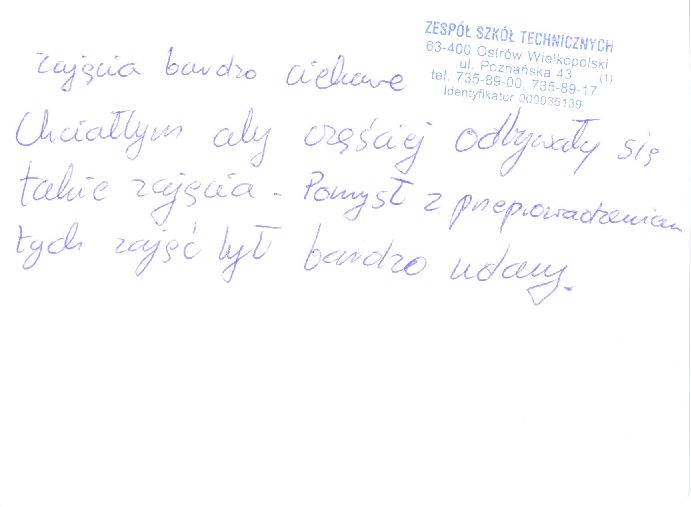 ZESPÓŁ SZKÓŁ TECHNICZNYCH
63-400 Ostrów Wielkopolski
ul. Poznańska 43 (1)
tel. 735-89-00, 735-89-17
Identyfikator 000035139
zajęcia bardzo ciekawe
Chciałbym aby częściej odbywały się
takie zajęcia - Pomysł z przeprowadzeniem
tych zajęć był bardzo udany.